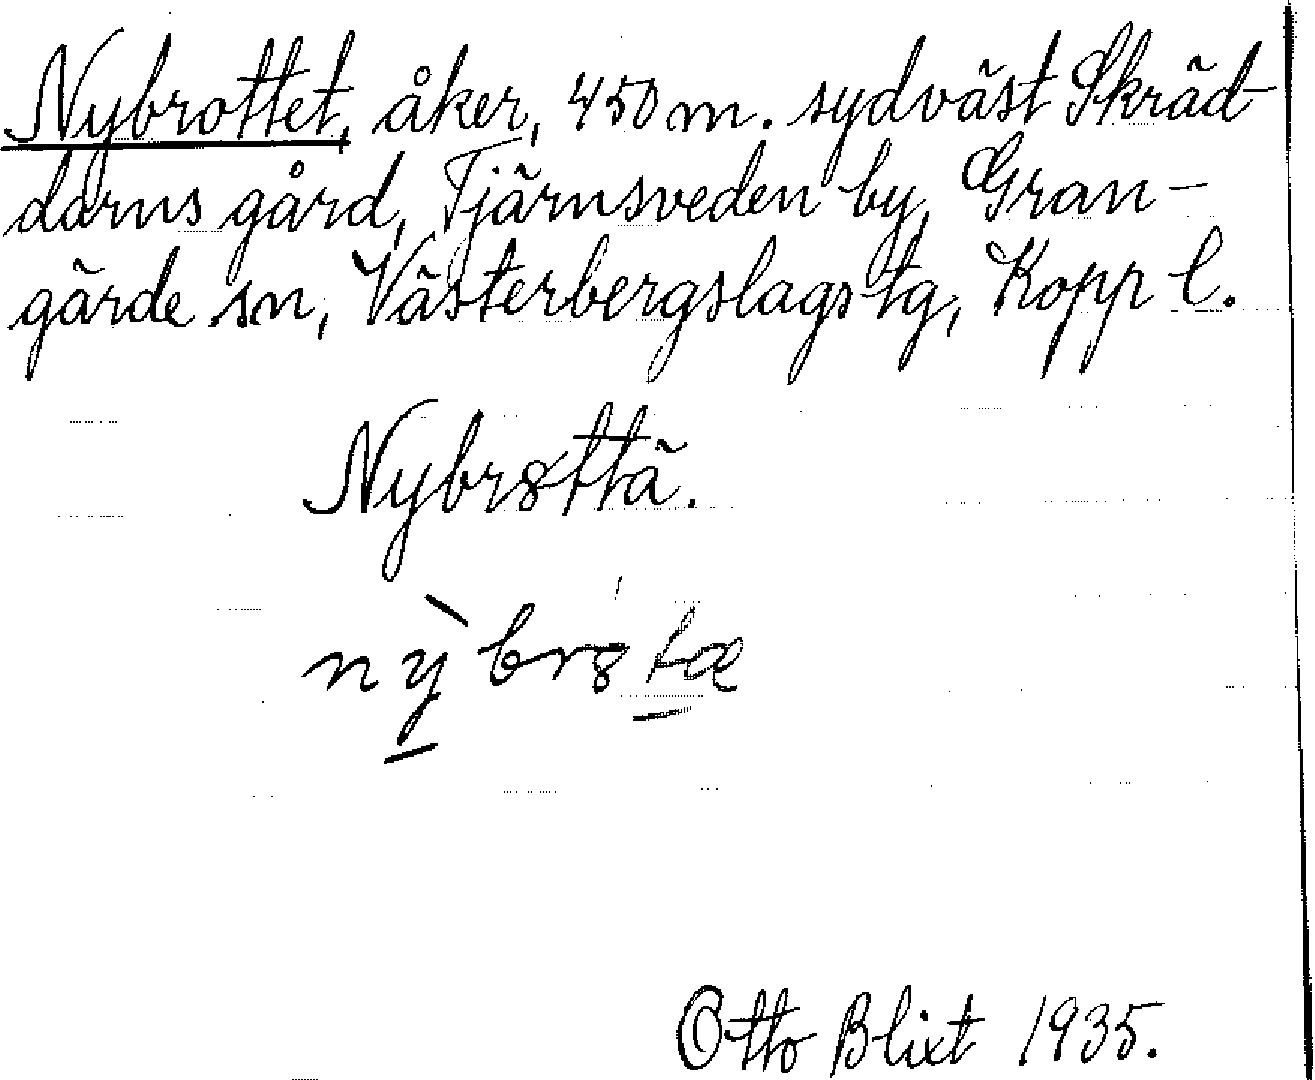 Nybrottet, åker, 450 m. sydväst Skräd-
darns gård, Tjärnsveden by, Gran-
gärde sn, Västerbergslags tg, Kopp l.
Nybr8ttä.
nỳbr8tæ
Otto Blixt 1935.